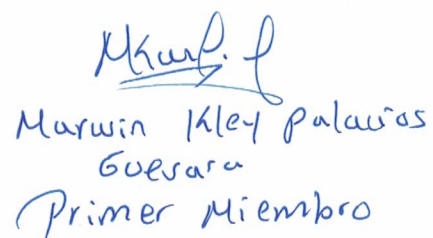 Marwin Kley Palacios
Guevara
Primer Miembro